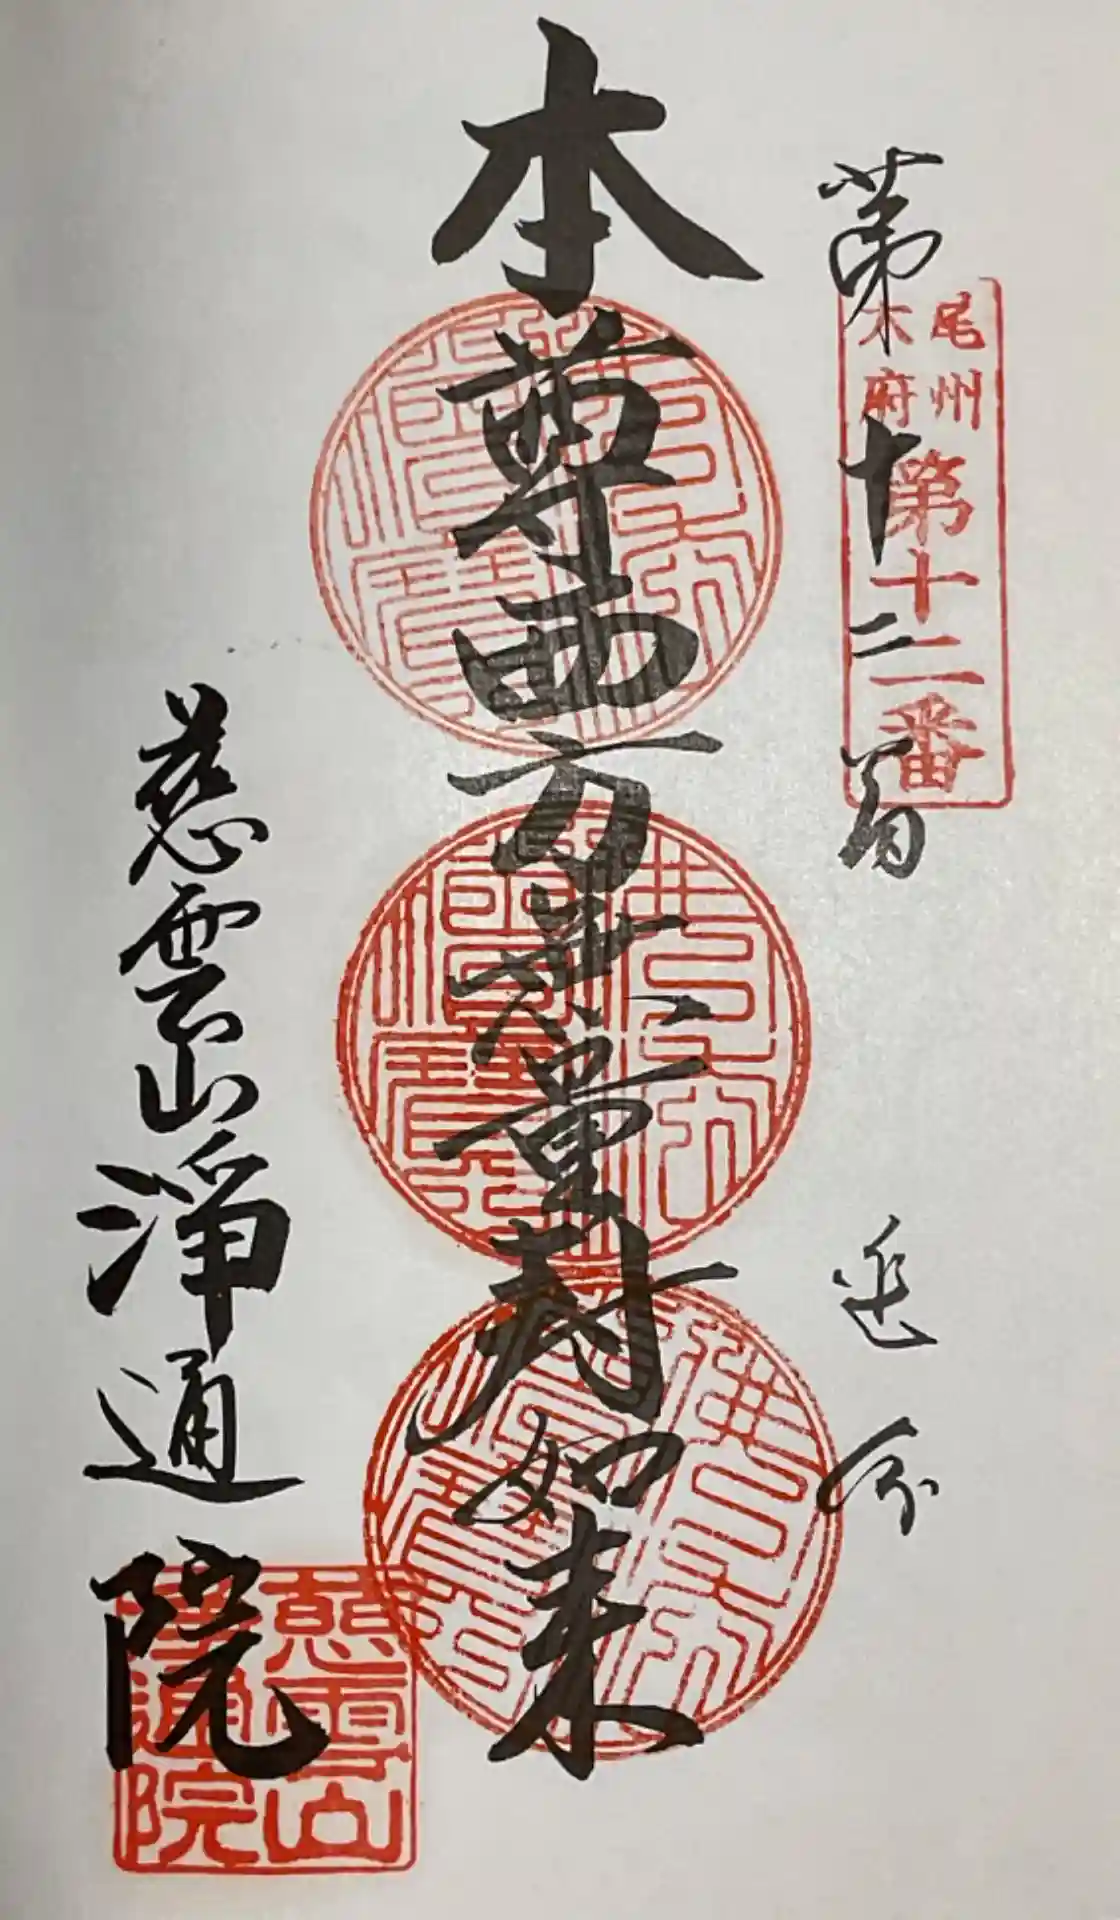 第十二番
尾州
大府
第十二番
本尊西方無量寿如来
慈雲山浄通院
慈雲山
浄通院